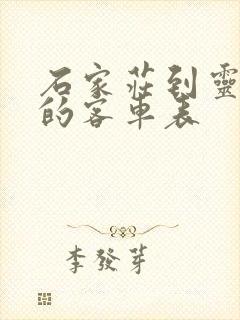 石家莊到靈
的客車表
李發芽